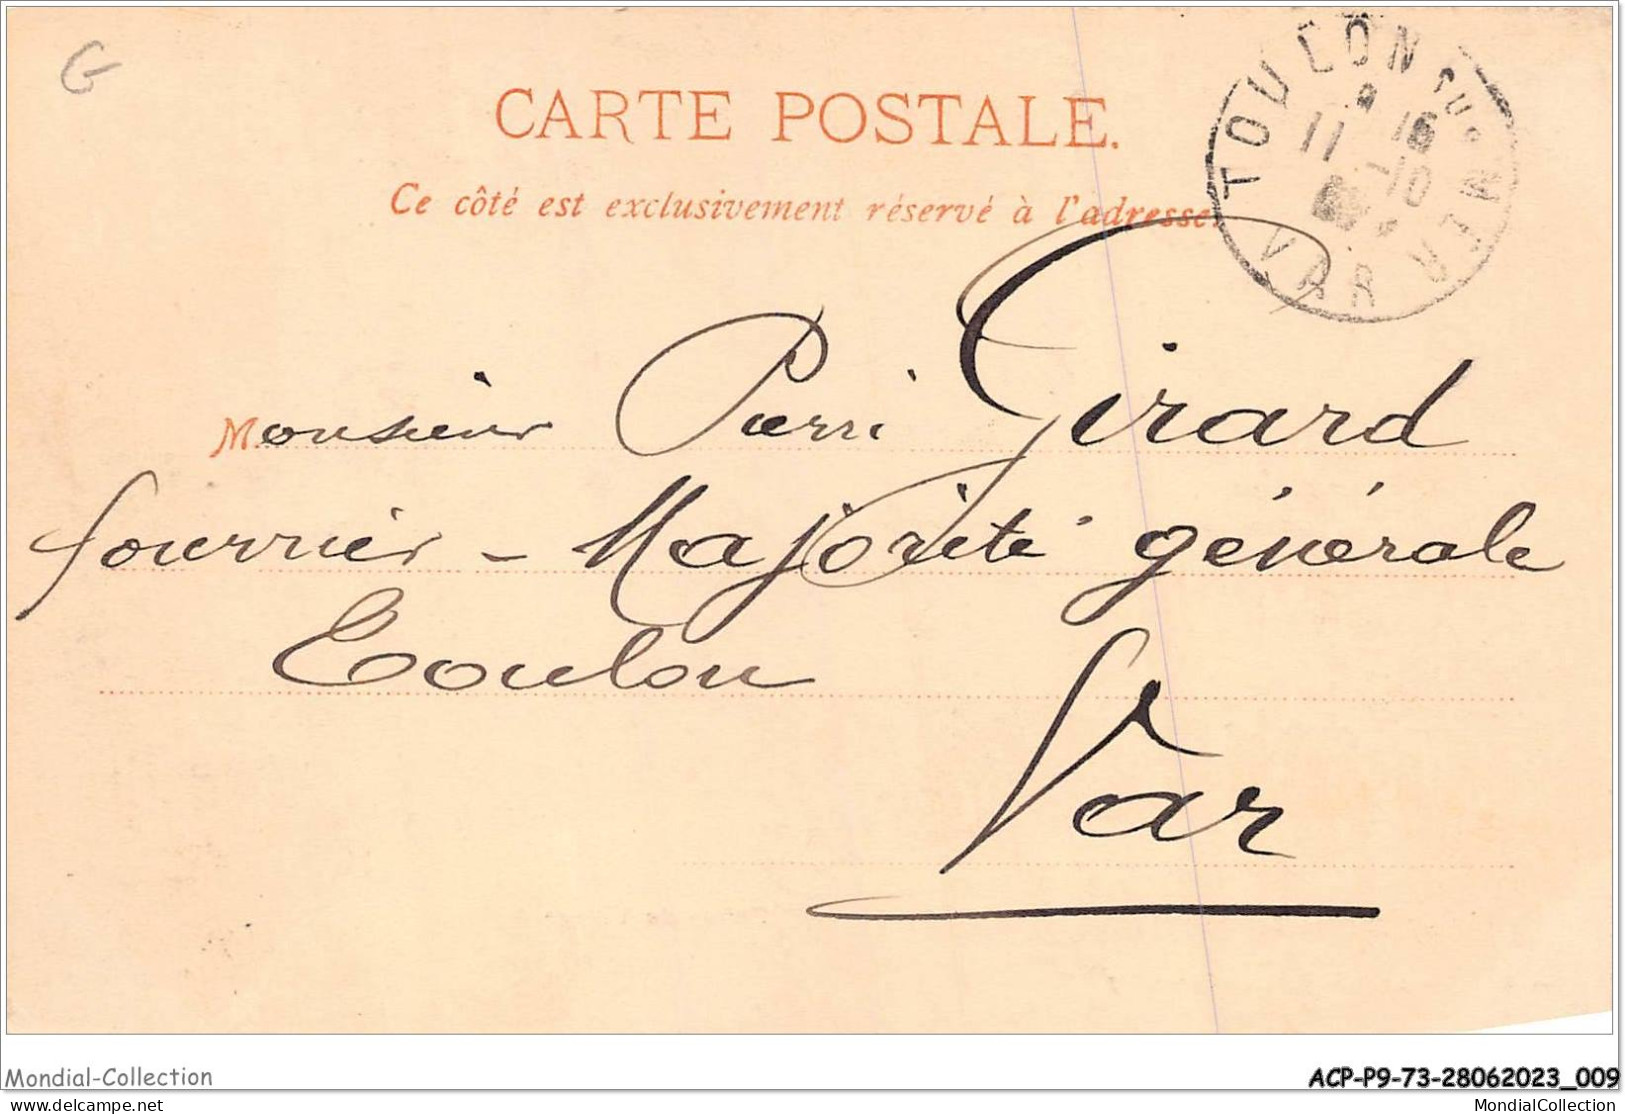 G
CARTE POSTALE.
Ce côté est exclusivement réservé à l'adresse.
TOULON SUR MER
11 15
-10
VAR
Monsieur Pierri Girard
fourrier - Majorité générale
Toulon
Var
Mondial-Collection
ACP-P9-73-28062023_009
delcampe.net
MondialCollection